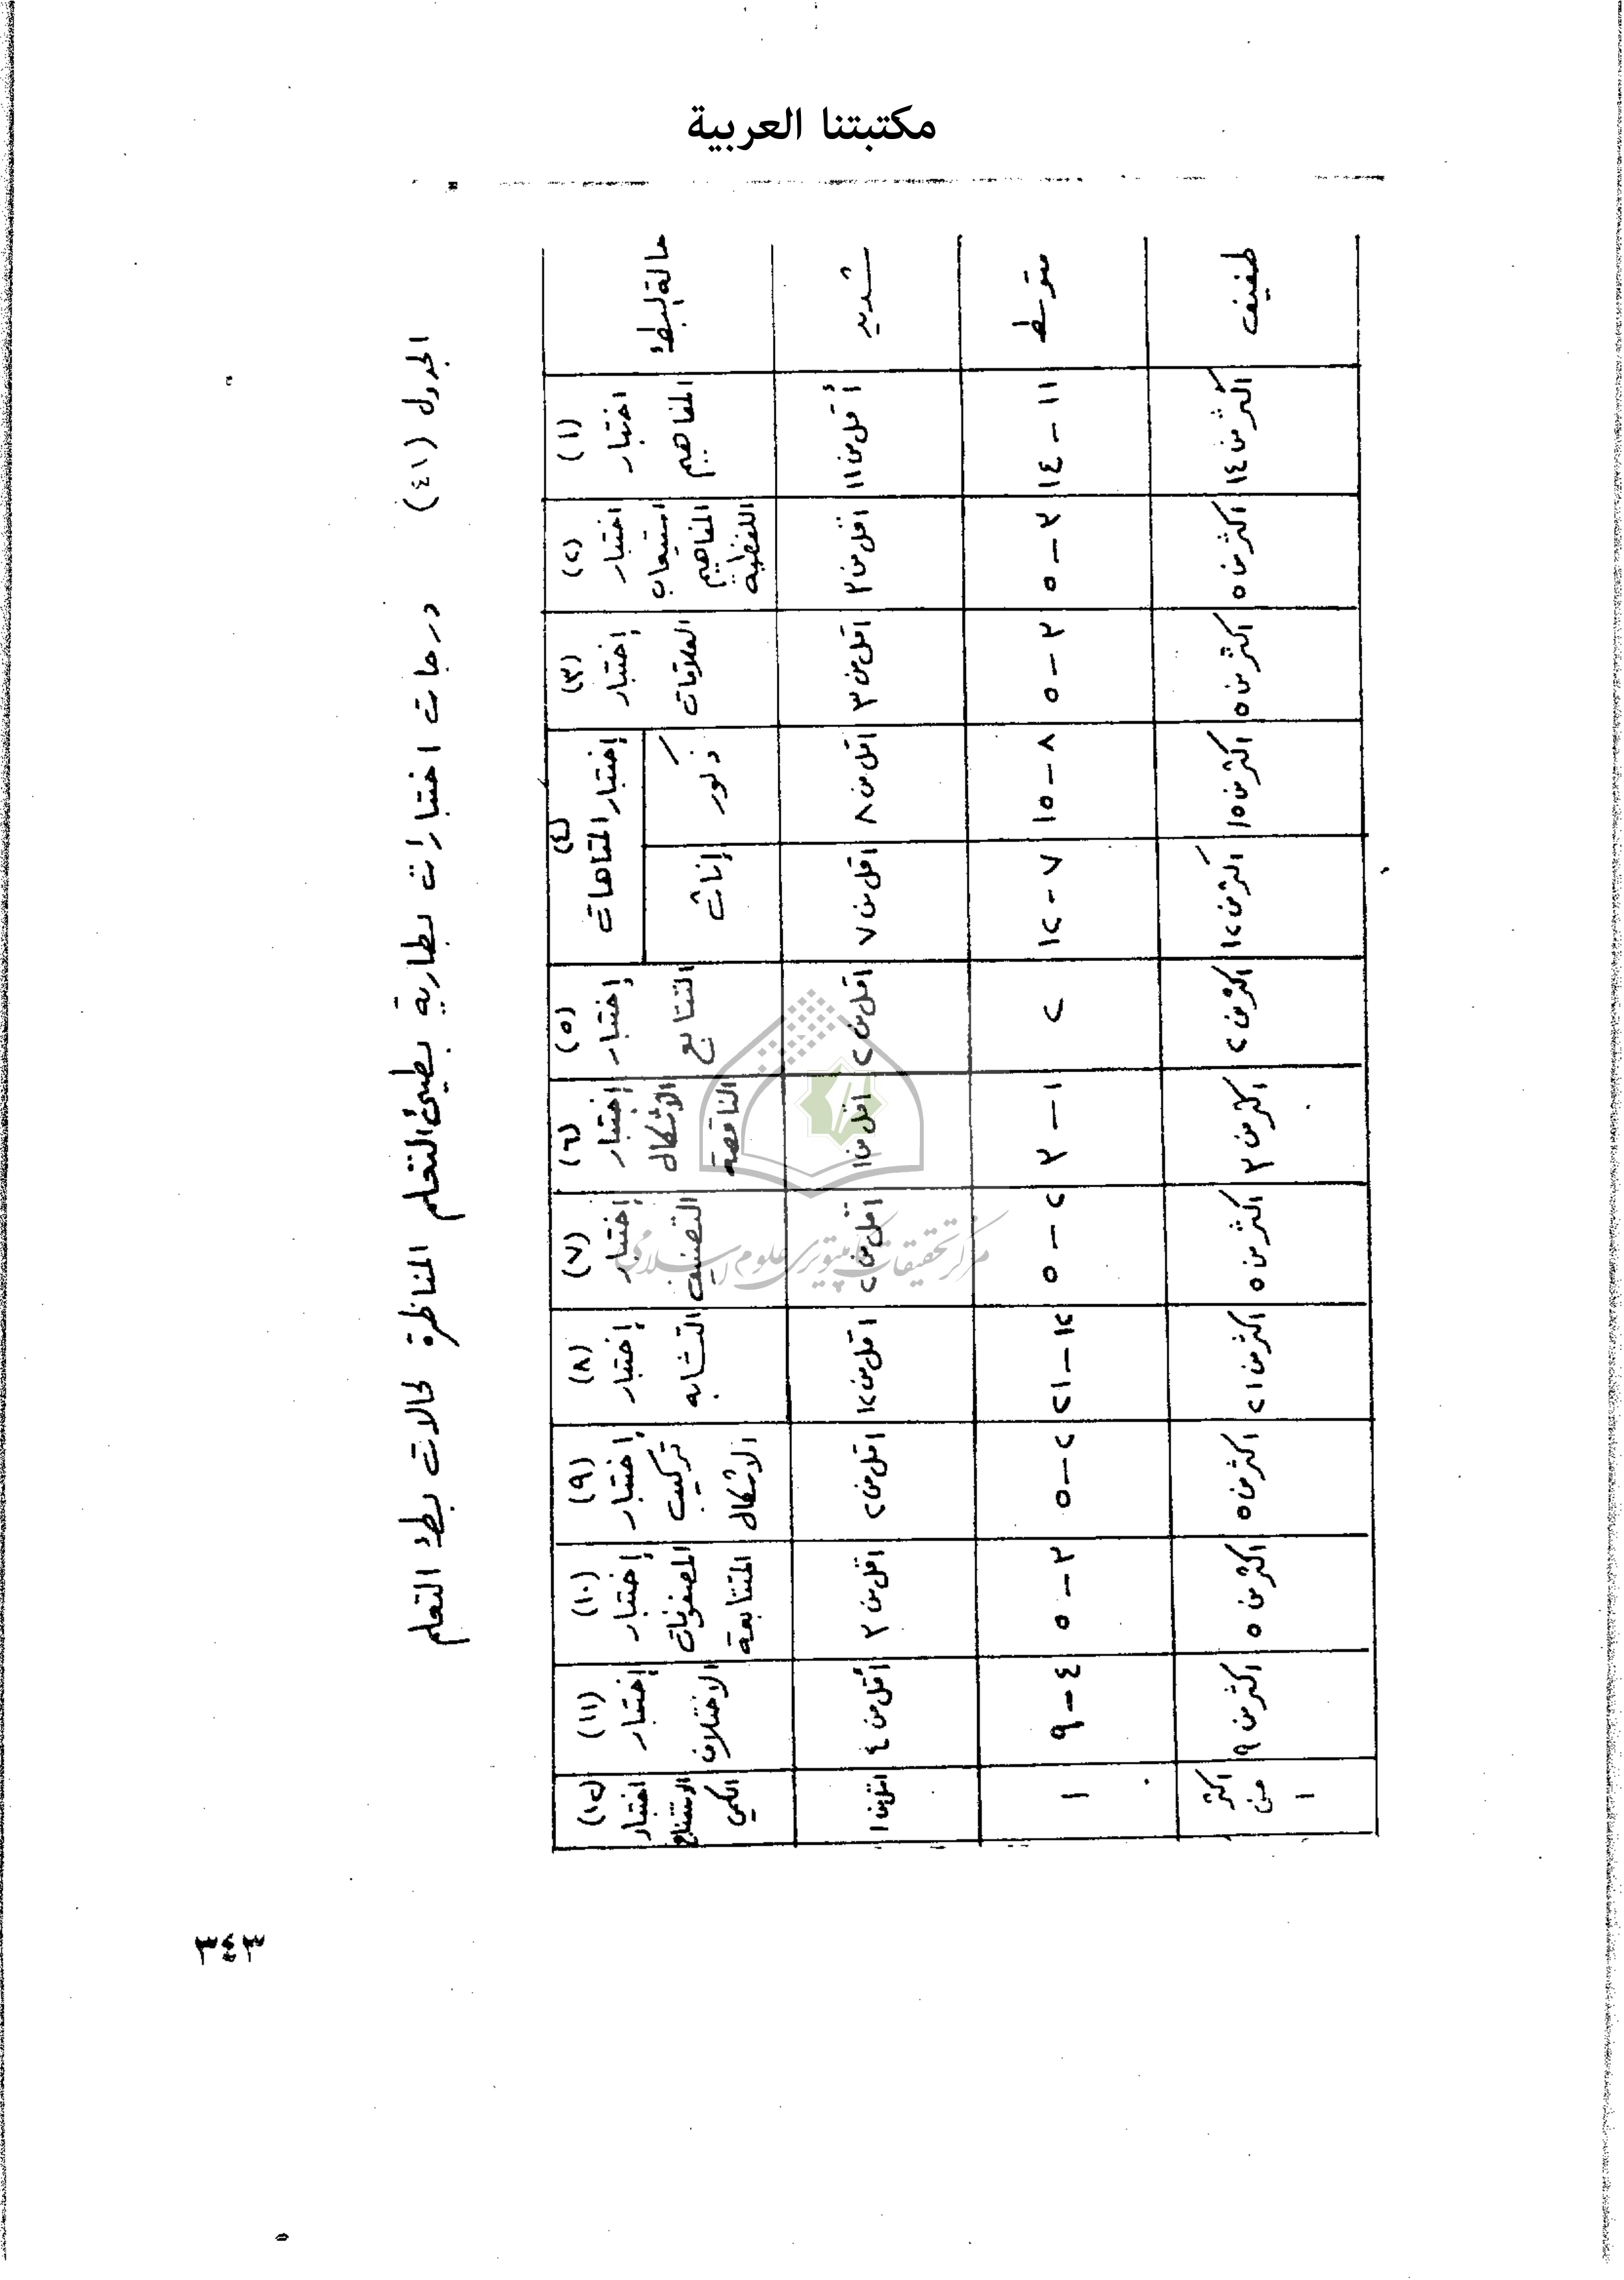 مكتبتنا العربية
الجدول (٤١) درجات اختبارات بطارية بطيئ التعلم المناظرة لحالات بطء التعلم
حالة البطء
(١) اختبار المفاهيم
(٢) اختبار استيعاب المفاهيم اللفظية
(٣) إختبار العلاقات
(٤) إختبار المتاهات
ذكور
إناث
(٥) إختبار التتابع
(٦) إختبار الأشكال الناقصة
(٧) إختبار التصنيف
(٨) إختبار التشابه
(٩) إختبار تركيب الاشكال
(١٠) إختبار المصفوفات المتتابعة
(١١) إختبار الاختلاف
(١٢) اختبار الاستنتاج الكمي
شديد
أقل من ١١
اقل من ٣
اقل من ٣
اقل من ٨
اقل من ٧
اقل من ٢
اقل من ١
اقل من ٢
اقل من ١٢
اقل من ٢
اقل من ٣
أقل من ٤
اقل من ١
متوسط
١١ - ١٤
٣ - ٥
٣ - ٥
٨ - ١٥
٧ - ١٢
٢
١ - ٣
٢ - ٥
١٢ - ٢١
٢ - ٥
٣ - ٥
٤ - ٩
١
طفيف
اكثر من ١٤
اكثر من ٥
اكثر من ٥
اكثر من ١٥
اكثر من ١٢
اكثر من ٢
اكثر من ٣
اكثر من ٥
اكثر من ٢١
اكثر من ٥
اكثر من ٥
اكثر من ٩
اكثر من ١
مركز تحقيقات كامپيوتري علوم اسلامي